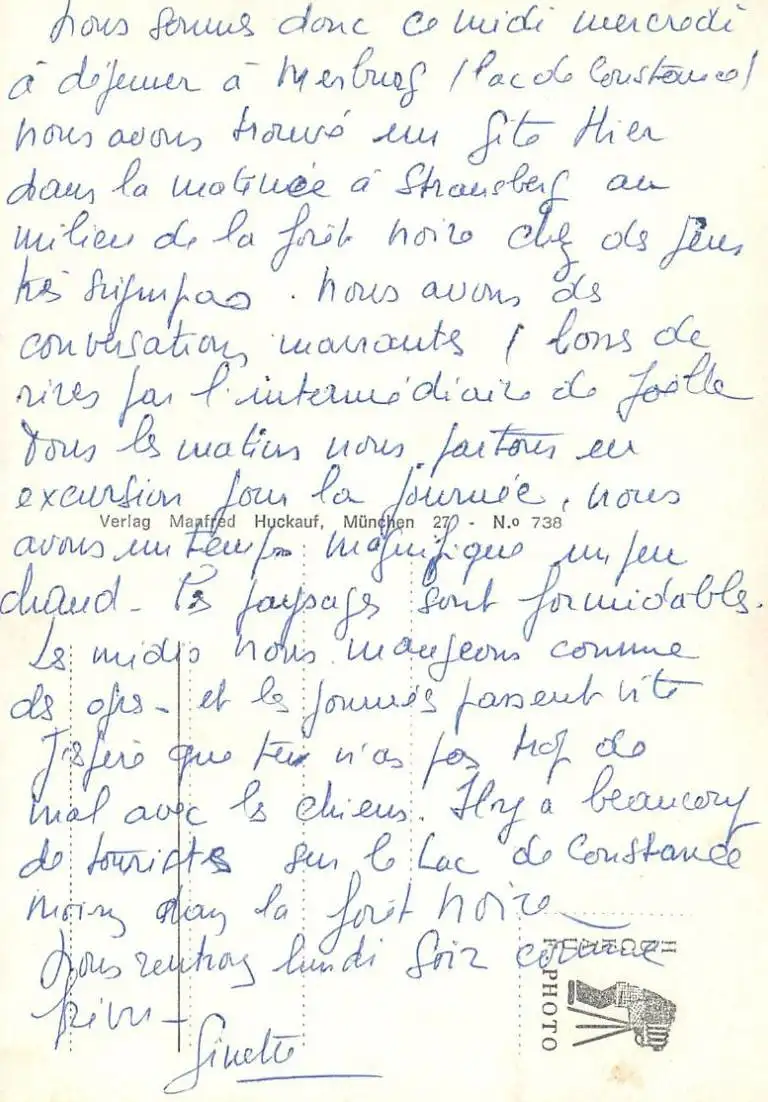 Nous sommes donc ce midi mercredi
à déjeuner à Mersburg (lac de Constance)
nous avons trouvé un gîte Hier
dans la matinée à Stransberg au
milieu de la forêt noire chez des gens
très sympas. Nous avons des
conversations marrantes
rires par l'intermédiaire de Joëlle
Tous les matins nous partons en
excursion pour la journée, nous
Verlag Manfred Huckauf, München 27 - N.o 738
avons un temps magnifique un peu
chaud - Les paysages sont formidables.
Les midis nous mangeons comme
des - et les journées passent vite
J'espère que tu n'as pas trop de
mal avec les chiens. Il y a beaucoup
de touristes sur le Lac de Constance
moins dans la forêt noire
Nous rentrons lundi soir comme
prévu -
Ginette
HUCKAUF
PHOTO